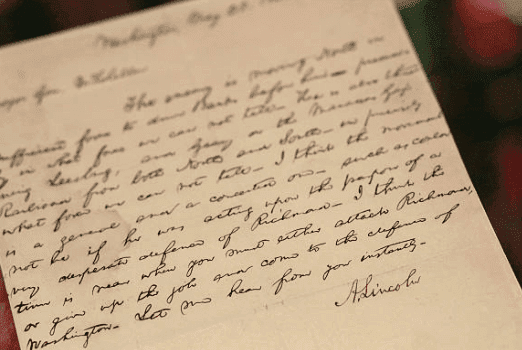 Washington, May 25.
ajor Gen. McClellan
The enemy is moving North in
ufficient force to drive Banks before him— precisely
in what force we can not tell— He is also threat
ning Leesburg, and Geary on the Manassas Gap
Railroad from both North and South— in precisely
what force we can not tell— I think the movement
is a general and concerted one— such as could
not be if he was acting upon the purpose of a
very desperate defence of Richmond— I think the
time is near when you must either attack Richmond,
or give up the job and come to the defence of
Washington— Let me hear from you instantly—
A. Lincoln